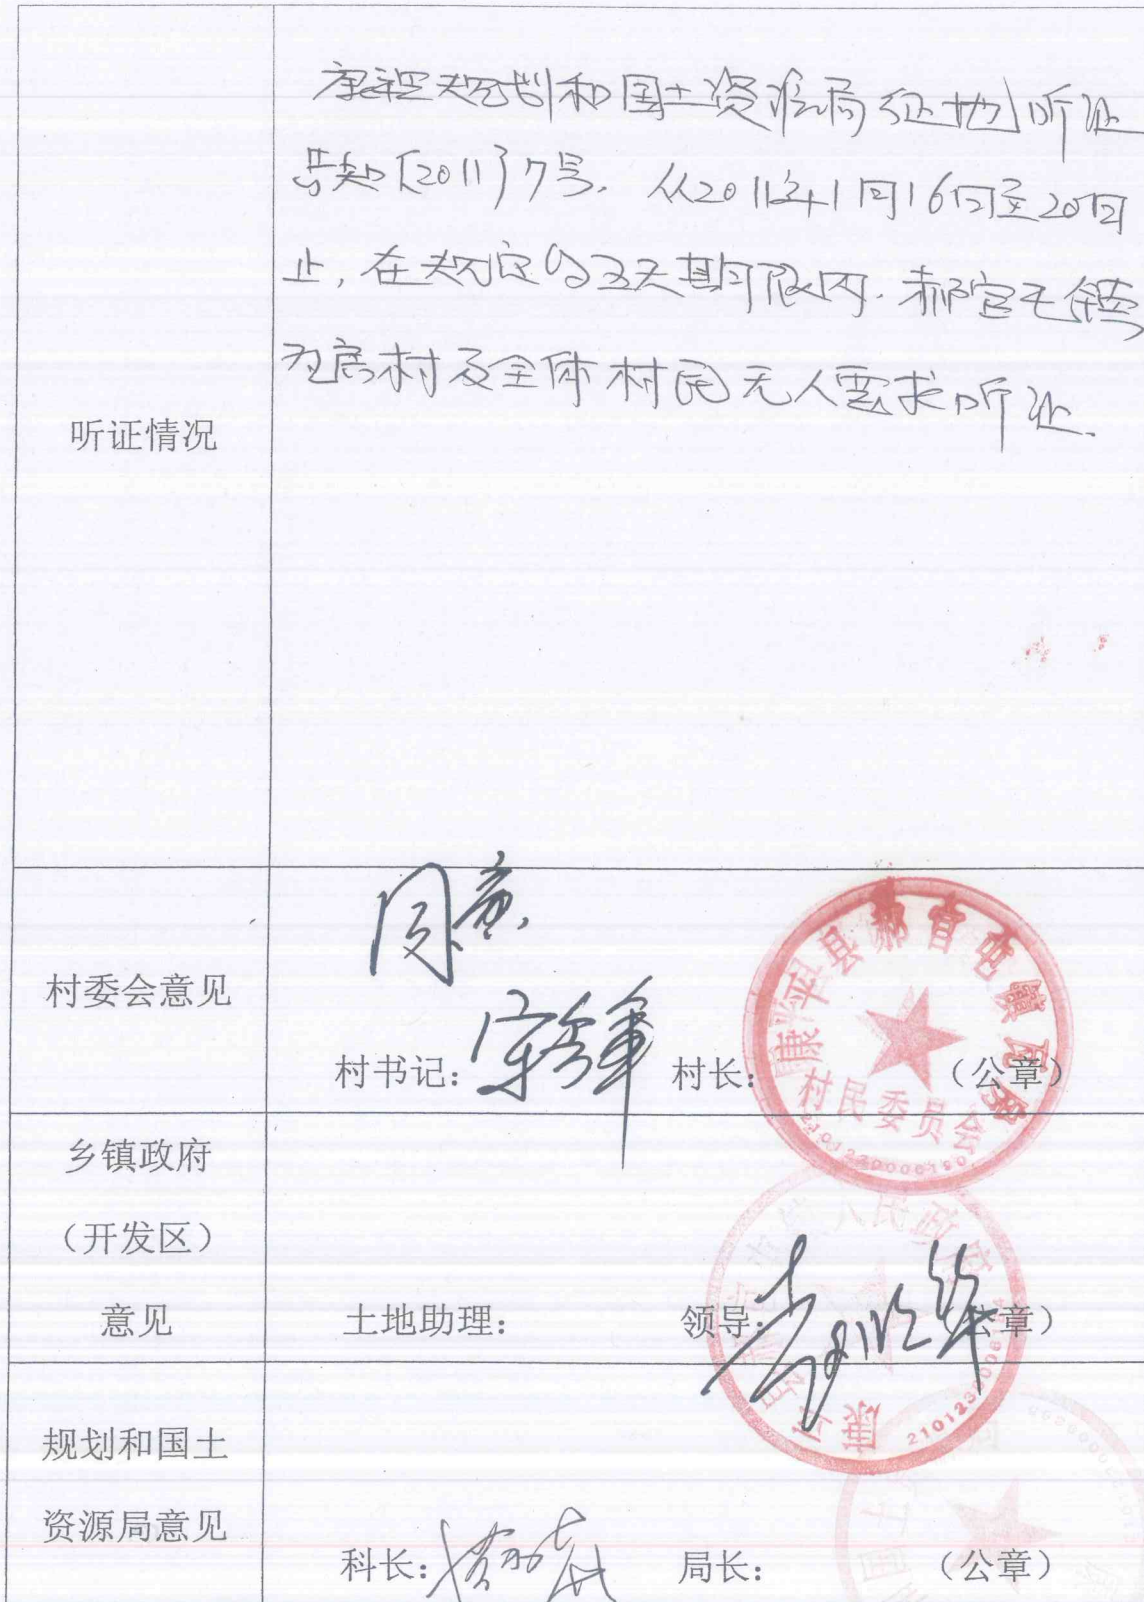 康平县规划和国土资源局征地听证
告知〔2011〕7号. 从2011年1月16日至20日
止, 在规定的五天期限内. 郝官屯镇
瓦房村及全体村民无人要求听证.
听证情况
同意.
村委会意见
村书记: 村长: (公章)
康平县郝官屯镇瓦房
村民委员会
乡镇政府
(开发区)
意见
土地助理: 领导: 公章)
人民政府
康平
规划和国土
资源局意见
科长: 局长: (公章)
国土